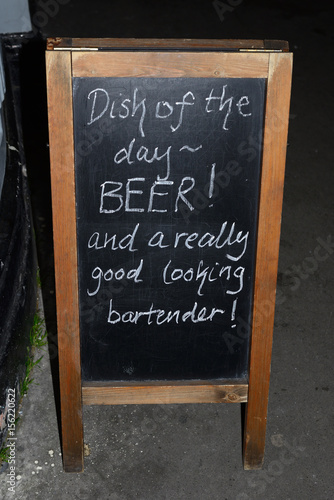 Dish of the
day ~
BEER!
and a really
good looking
bartender!
156220622